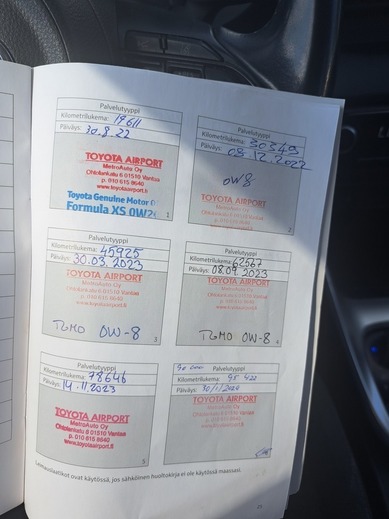 Palvelutyyppi
Kilometrilukema: 19611
Päiväys: 30.8.22
TOYOTA AIRPORT
MetroAuto Oy
Ohtolankatu 6 01510 Vantaa
p. 010 615 8640
www.toyotaairport.fi
Toyota Genuine Motor O
Formula XS 0W2
1
Palvelutyyppi
Kilometrilukema: 30349
Päiväys: 08.12.2022
0W8
TOYOTA AIRPORT
MetroAuto Oy
2
Palvelutyyppi
Kilometrilukema: 45925
Päiväys: 30.03.2023
TOYOTA AIRPORT
MetroAuto Oy
Ohtolankatu 6 01510 Vantaa
p. 010 615 8640
www.toyotaairport.fi
TGMO 0W-8
3
Palvelutyyppi
Kilometrilukema: 62567
Päiväys: 08.09.2023
TOYOTA AIRPORT
MetroAuto Oy
Ohtolankatu 6 01510 Vantaa
p. 010 615 8640
www.toyotaairport.fi
TGMO 0W-8
4
Palvelutyyppi
Kilometrilukema: 78646
Päiväys: 14.11.2023
TOYOTA AIRPORT
MetroAuto Oy
Ohtolankatu 6 01510 Vantaa
p. 010 615 8640
www.toyotaairport.fi
5
90 000 Palvelutyyppi
Kilometrilukema: 95 422
Päiväys: 30/1/2024
TOYOTA AIRPORT
MetroAuto Oy
Ohtolankatu 6 01510 Vantaa
p. 010 615 8640
www.toyotaairport.fi
Leimauslaatikot ovat käytössä, jos sähköinen huoltokirja ei ole käytössä maassasi.
21